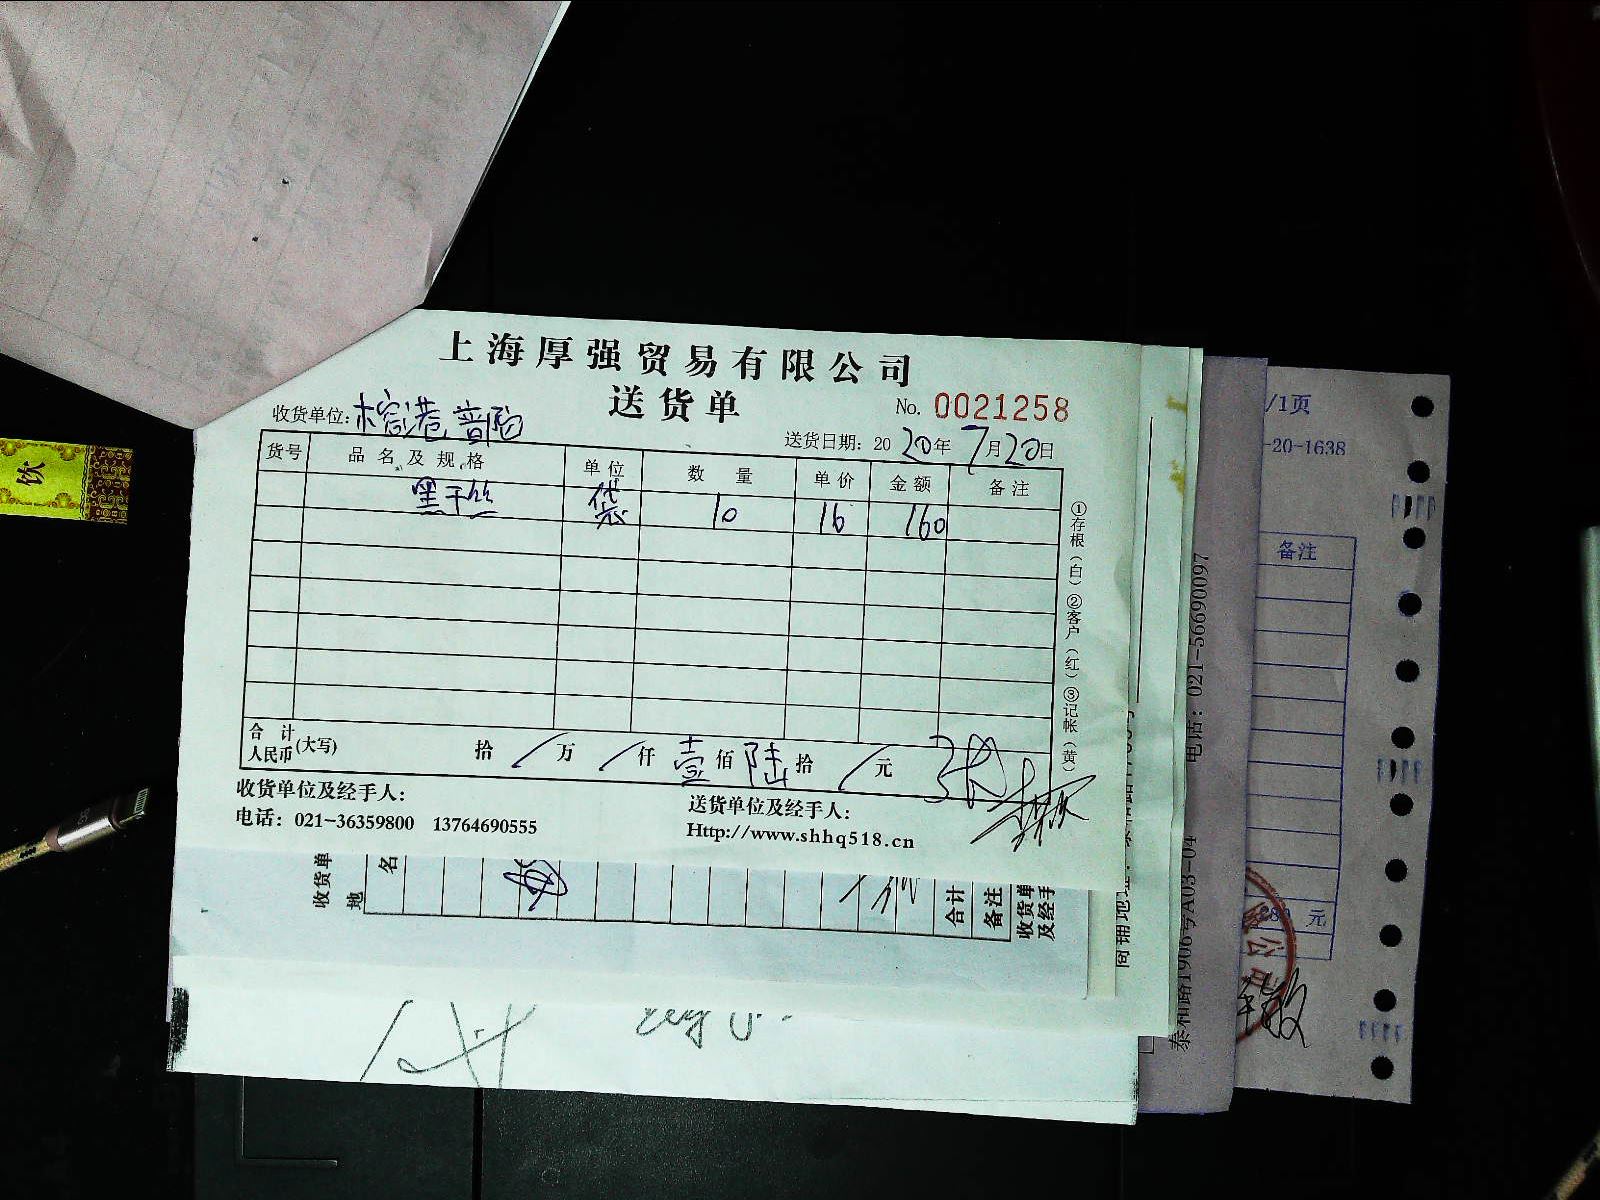 上海厚强贸易有限公司
送货单
No. 0021258
收货单位: 榕港 普陀
送货日期: 2020年7月20日
货号 品名及规格 单位 数量 单价 金额 备注
黑干丝 袋 10 16 160
合计人民币(大写) 拾/万/仟壹佰陆拾/元
①存根(白)②客户(红)③记帐(黄)
收货单位及经手人:
送货单位及经手人:
电话: 021-36359800 13764690555
Http://www.shhq518.cn
收货单
地
名
合计
备注
收货单
及经手
泰和路1906号A03-04 电话: 021-56690097
/1页
-20-1638
备注
元
饮